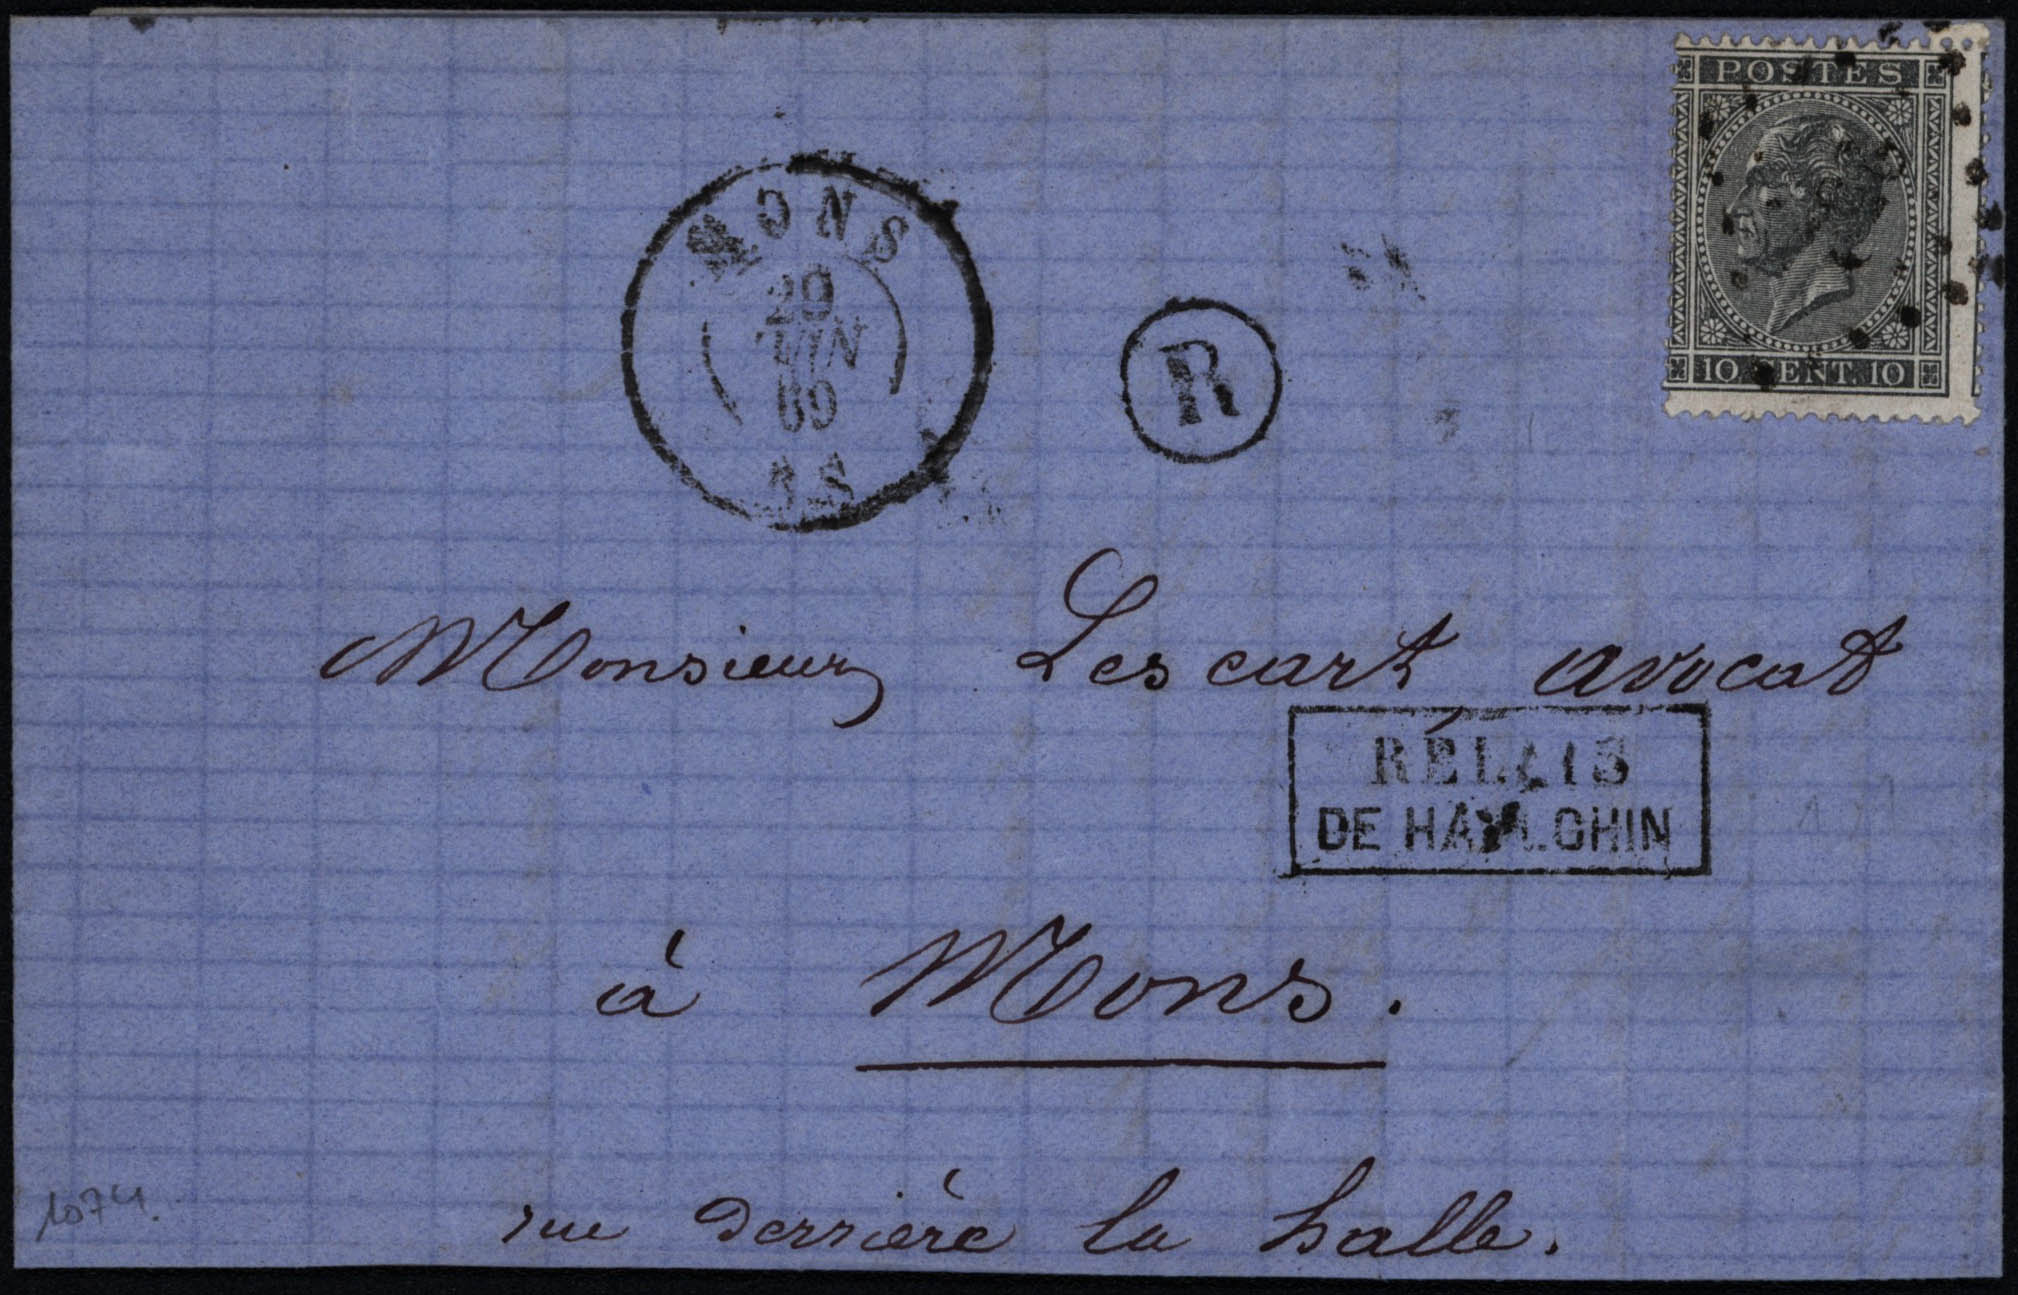 POSTES
10 CENT. 10
MONS
JUIN
R
Monsieur Lescart avocat
RELAIS
DE HAULCHIN
à Mons.
rue derrière la halle.
1074.